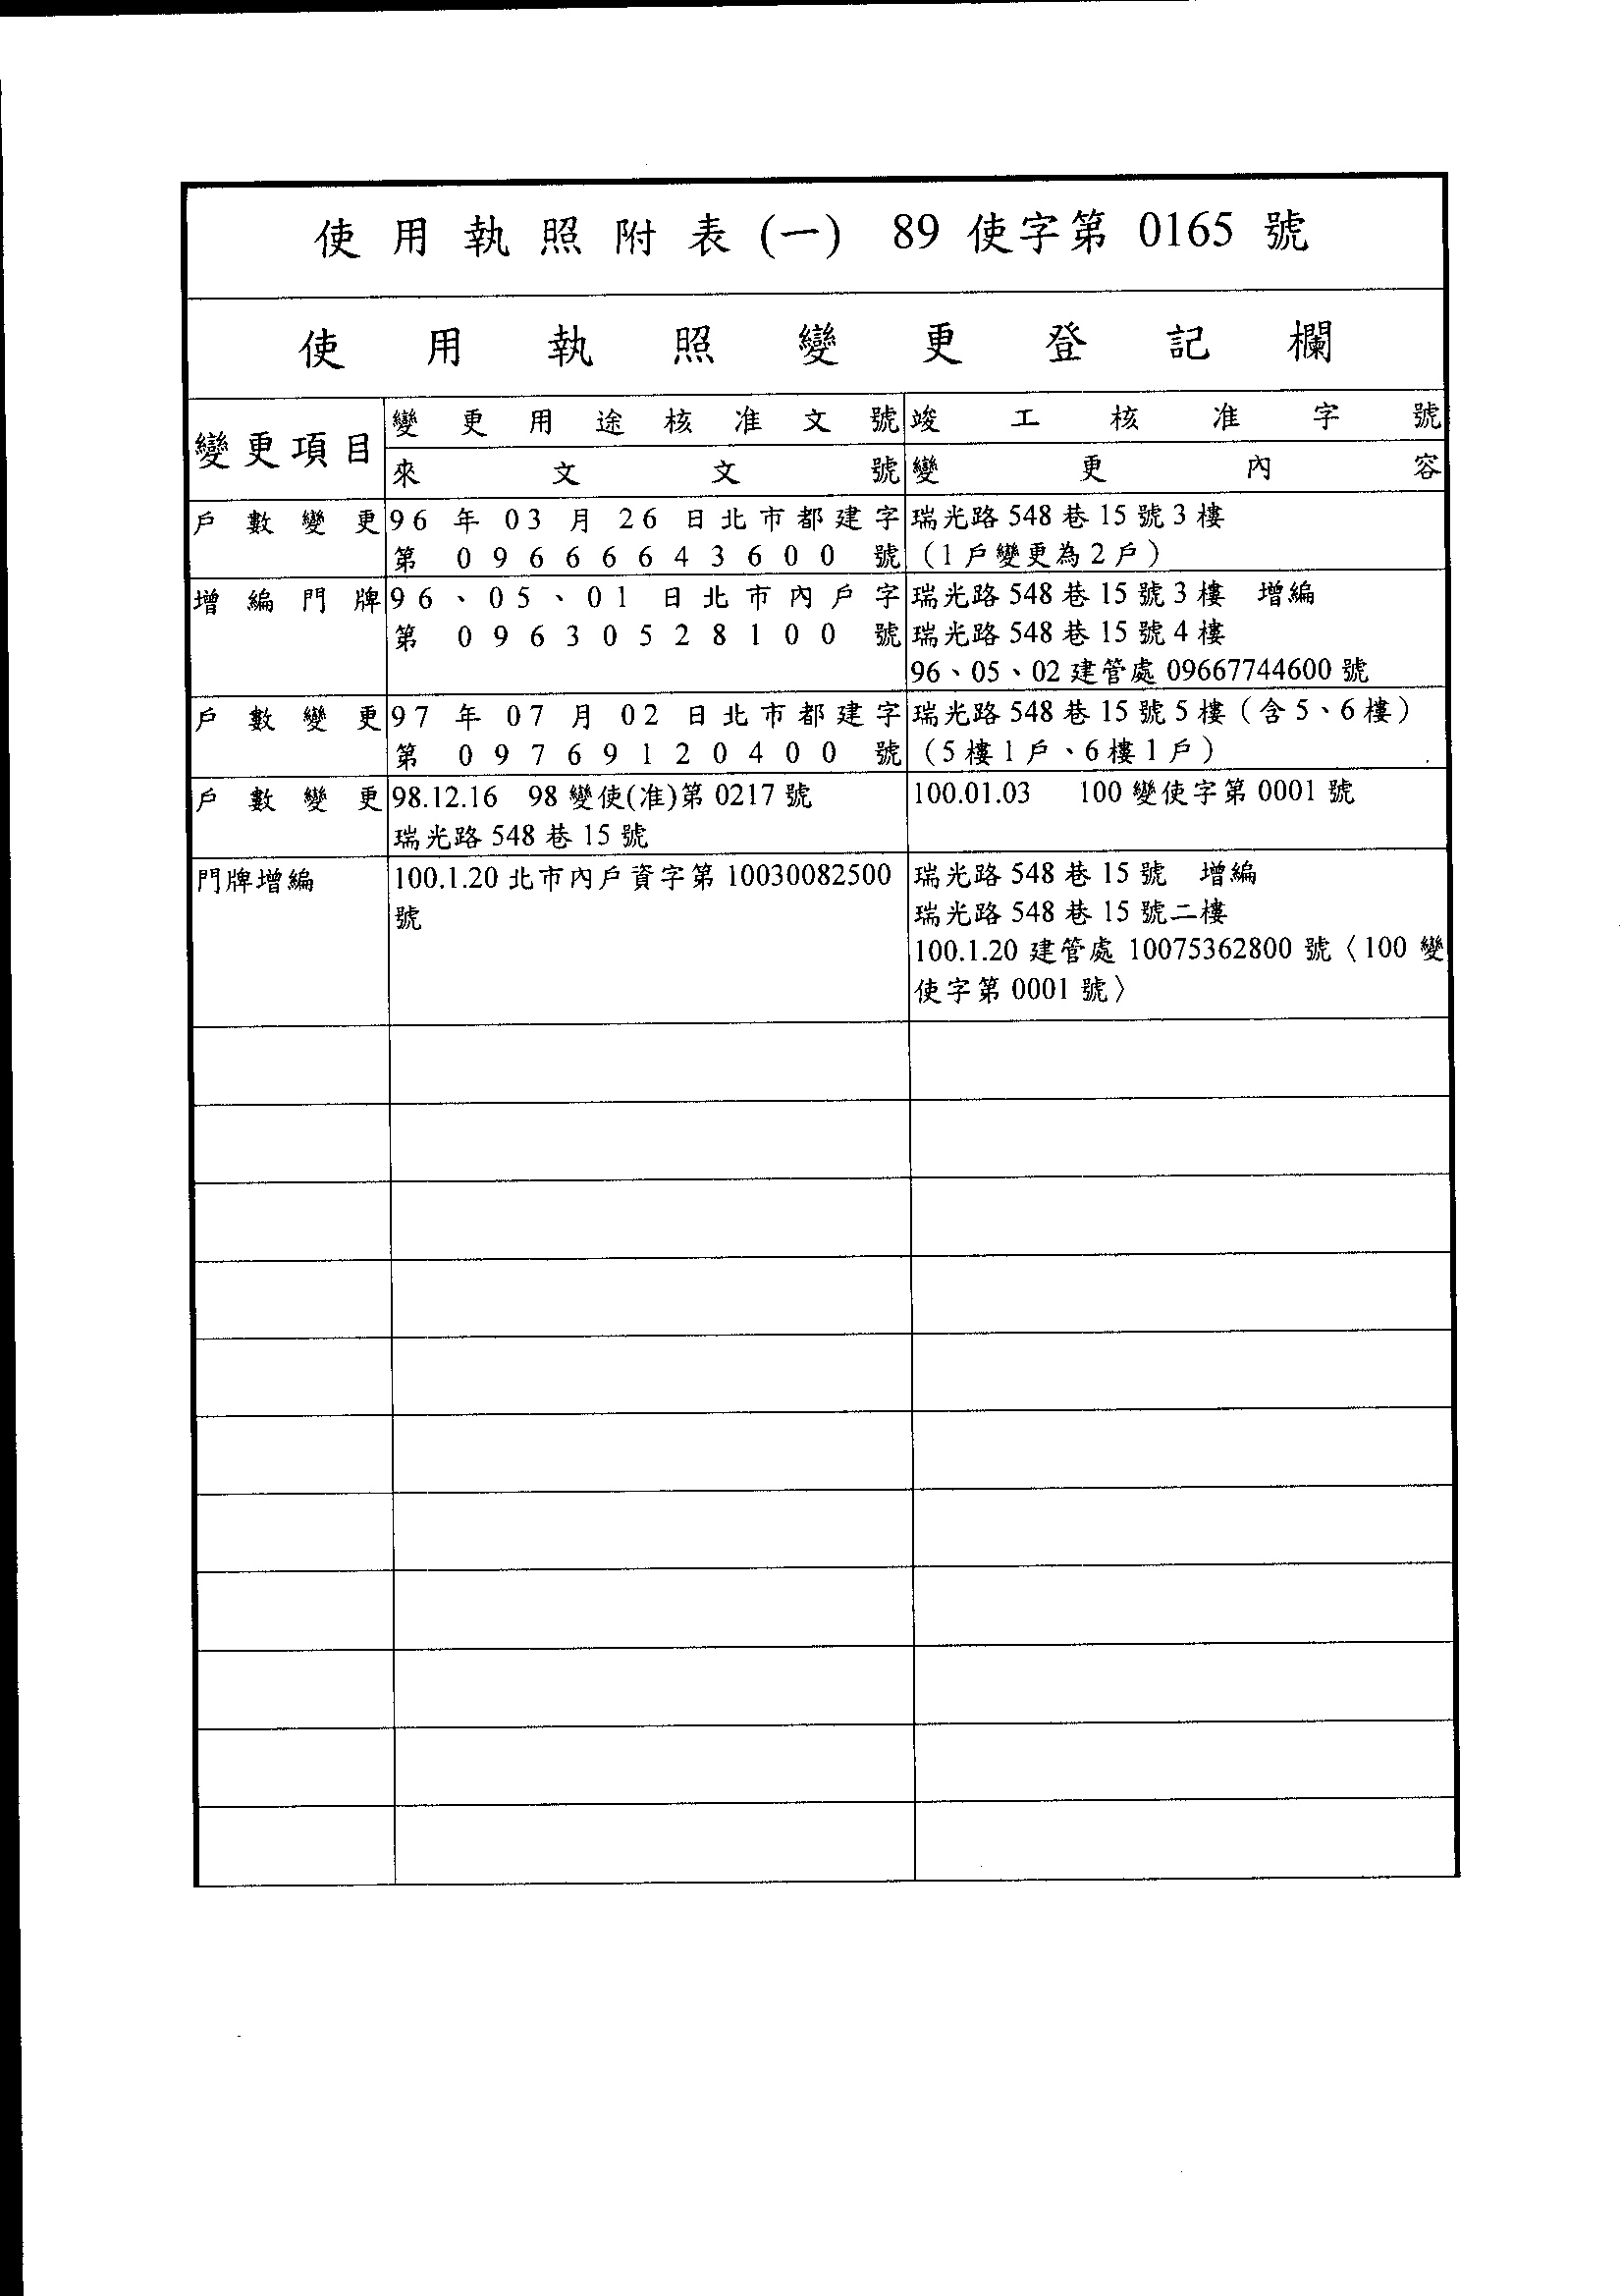 使用執照附表(一) 89使字第0165號
使用執照變更登記欄
變更項目
變更用途核准文號 竣工核准字號
來文文號 變更內容
戶數變更 96年03月26日北市都建字 瑞光路548巷15號3樓
第09666643600號 (1戶變更為2戶)
增編門牌 96、05、01日北市內戶字 瑞光路548巷15號3樓 增編
第09630528100號 瑞光路548巷15號4樓
96、05、02建管處09667744600號
戶數變更 97年07月02日北市都建字 瑞光路548巷15號5樓(含5、6樓)
第09769120400號 (5樓1戶、6樓1戶)
戶數變更 98.12.16 98變使(准)第0217號 100.01.03 100變使字第0001號
瑞光路548巷15號
門牌增編 100.1.20北市內戶資字第10030082500 瑞光路548巷15號 增編
號 瑞光路548巷15號二樓
100.1.20建管處10075362800號〈100變
使字第0001號〉